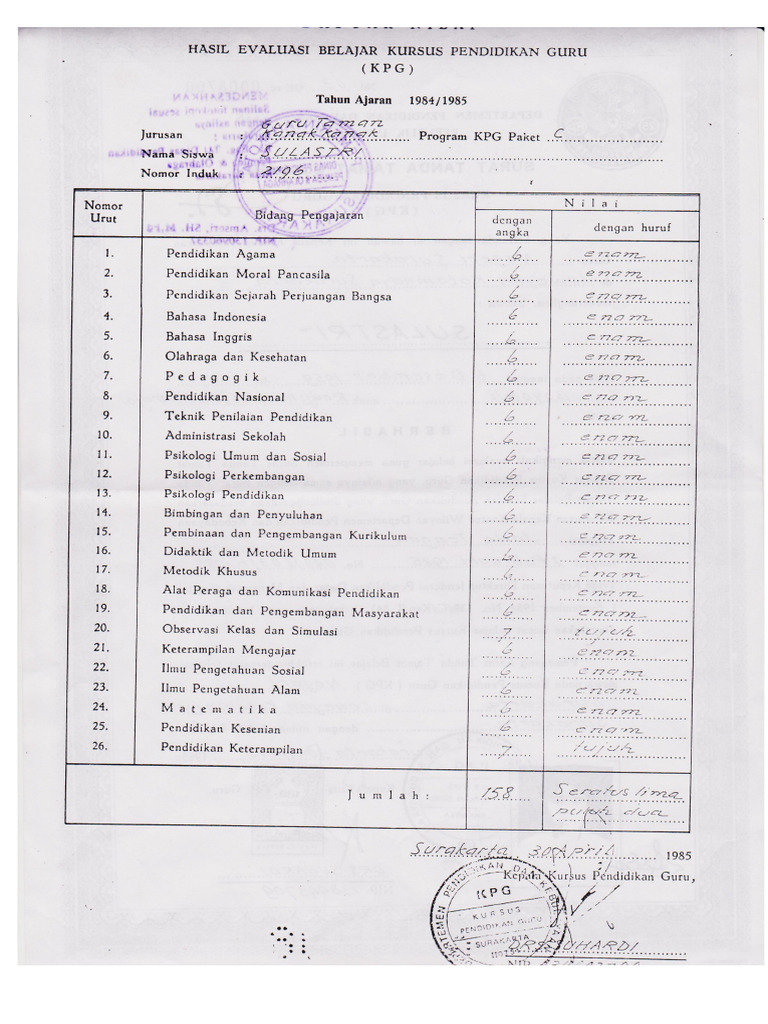 DAFTAR NILAI
HASIL EVALUASI BELAJAR KURSUS PENDIDIKAN GURU
( K P G )
Tahun Ajaran 1984/1985
Guru Taman
Jurusan : Kanak Kanak Program KPG Paket C
Nama Siswa : SULASTRI
Nomor Induk : 2196
Nomor Urut Bidang Pengajaran N i l a i
dengan angka dengan huruf
1. Pendidikan Agama 6 enam
2. Pendidikan Moral Pancasila 6 enam
3. Pendidikan Sejarah Perjuangan Bangsa 6 enam
4. Bahasa Indonesia 6 enam
5. Bahasa Inggris 6 enam
6. Olahraga dan Kesehatan 6 enam
7. P e d a g o g i k 6 enam
8. Pendidikan Nasional 6 enam
9. Teknik Penilaian Pendidikan 6 enam
10. Administrasi Sekolah 6 enam
11. Psikologi Umum dan Sosial 6 enam
12. Psikologi Perkembangan 6 enam
13. Psikologi Pendidikan 6 enam
14. Bimbingan dan Penyuluhan 6 enam
15. Pembinaan dan Pengembangan Kurikulum 6 enam
16. Didaktik dan Metodik Umum 6 enam
17. Metodik Khusus 6 enam
18. Alat Peraga dan Komunikasi Pendidikan 6 enam
19. Pendidikan dan Pengembangan Masyarakat 6 enam
20. Observasi Kelas dan Simulasi 7 tujuh
21. Keterampilan Mengajar 6 enam
22. Ilmu Pengetahuan Sosial 6 enam
23. Ilmu Pengetahuan Alam 6 enam
24. M a t e m a t i k a 6 enam
25. Pendidikan Kesenian 6 enam
26. Pendidikan Keterampilan 7 tujuh
J u m l a h : 158 Seratus lima
puluh dua
Surakarta, 30 April 1985
Kepala Kursus Pendidikan Guru,
DEPARTEMEN PENDIDIKAN DAN KEBUDAYAAN
KPG
KURSUS
PENDIDIKAN GURU
SURAKARTA
DRS. SUHARDI
NIP.